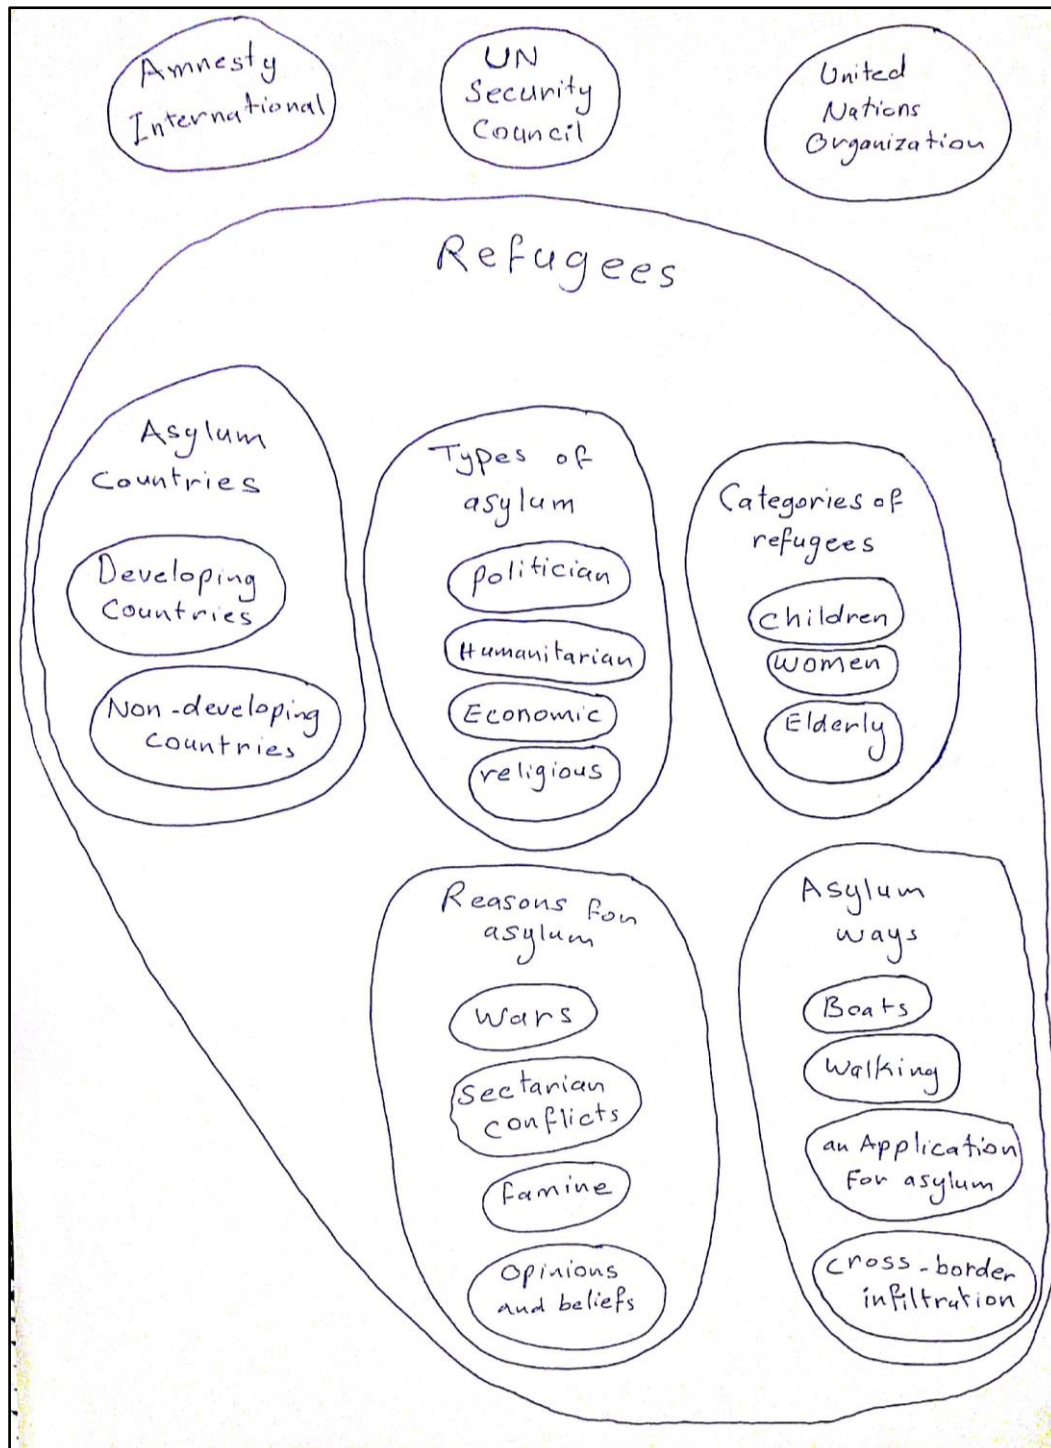 Amnesty
International
UN
Security
Council
United
Nations
Organization
Refugees
Asylum
Countries
Developing
Countries
Non-developing
countries
Types of
asylum
politician
Humanitarian
Economic
religious
Categories of
refugees
children
women
Elderly
Reasons for
asylum
Wars
Sectarian
conflicts
famine
Opinions
and beliefs
Asylum
ways
Boats
Walking
an Application
For asylum
cross-border
infiltration